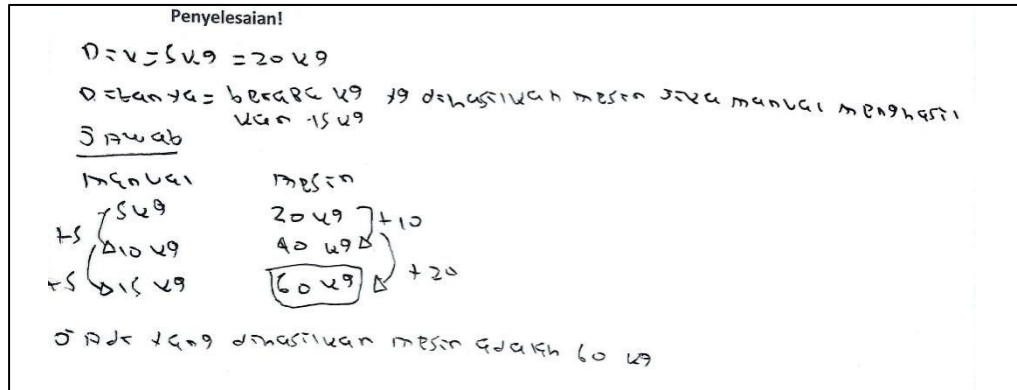 Penyelesaian!
D = k = 5 kg = 20 kg
D = tanya = berapa kg yg dihasilkan mesin jika manual menghasil
kan 15 kg
Jawab
manual mesin
5 kg 20 kg +10
+5 10 kg 40 kg
+5 15 kg 60 kg +20
Jadi yang dihasilkan mesin adalah 60 kg